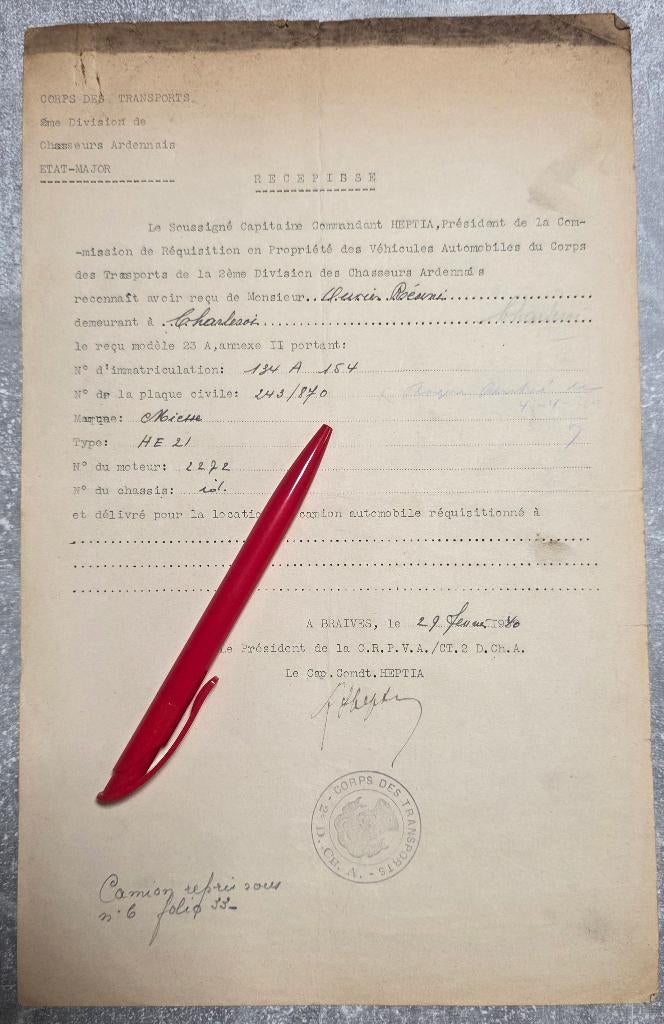 CORPS DES TRANSPORTS
2me Division de
Chasseurs Ardennais
ETAT-MAJOR
RECEPISSE
Le Soussigné Capitaine Commandant HEPTIA, Président de la Com-
-mission de Réquisition en Propriété des Véhicules Automobiles du Corps
des Transports de la 2ème Division des Chasseurs Ardennais
reconnaît avoir reçu de Monsieur
demeurant à Charleroi
le reçu modèle 23 A, annexe II portant:
N° d'immatriculation: 134 A 154
N° de la plaque civile: 243/870
Marque: Miesse
Type: HE 21
N° du moteur: 2272
N° du chassis: id.
et délivré pour la locatio camion automobile réquisitionné à
A BRAIVES, le 29 février 1940
Le Président de la C.R.P.V.A./CT.2 D.Ch.A.
Le Cap. Comdt. HEPTIA
CORPS DES TRANSPORTS - 2e D. Ch. A.
Camion repris sous
n° 6 folio 33-